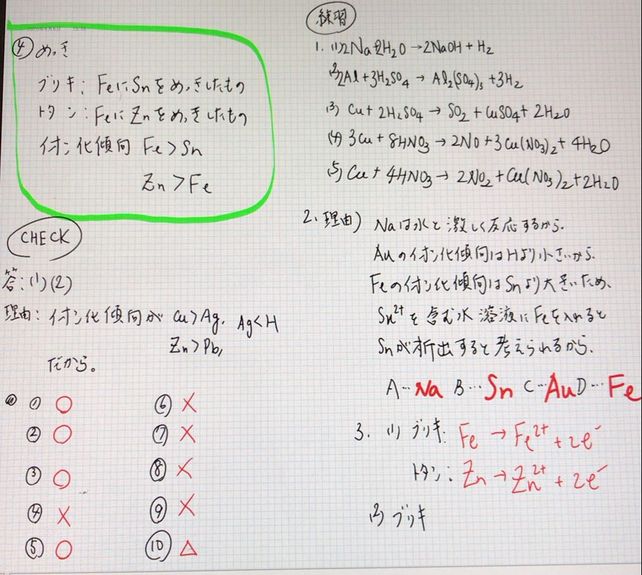 ④ めっき
ブリキ：FeにSnをめっきしたもの
トタン：FeにZnをめっきしたもの
イオン化傾向 Fe>Sn
Zn>Fe
CHECK
答：(1)(2)
理由：イオン化傾向が Cu>Ag, Ag<H
Zn>Pb,
だから。
① ○
② ○
③ ○
④ ×
⑤ ○
⑥ ×
⑦ ×
⑧ ×
⑨ ×
⑩ △
練習
1. (1) 2Na+2H₂O→2NaOH+H₂
(2) 2Al+3H₂SO₄→Al₂(SO₄)₃+3H₂
(3) Cu+2H₂SO₄→SO₂+CuSO₄+2H₂O
(4) 3Cu+8HNO₃→2NO+3Cu(NO₃)₂+4H₂O
(5) Cu+4HNO₃→2NO₂+Cu(NO₃)₂+2H₂O
2. 理由) Naは水と激しく反応するから。
Auのイオン化傾向はHより小さいから。
Feのイオン化傾向はSnより大きいため、
Sn²⁺を含む水溶液にFeを入れると
Snが析出すると考えられるから。
A…Na B…Sn C…Au D…Fe
3. (1) ブリキ：Fe→Fe²⁺+2e⁻
トタン：Zn→Zn²⁺+2e⁻
(2) ブリキ